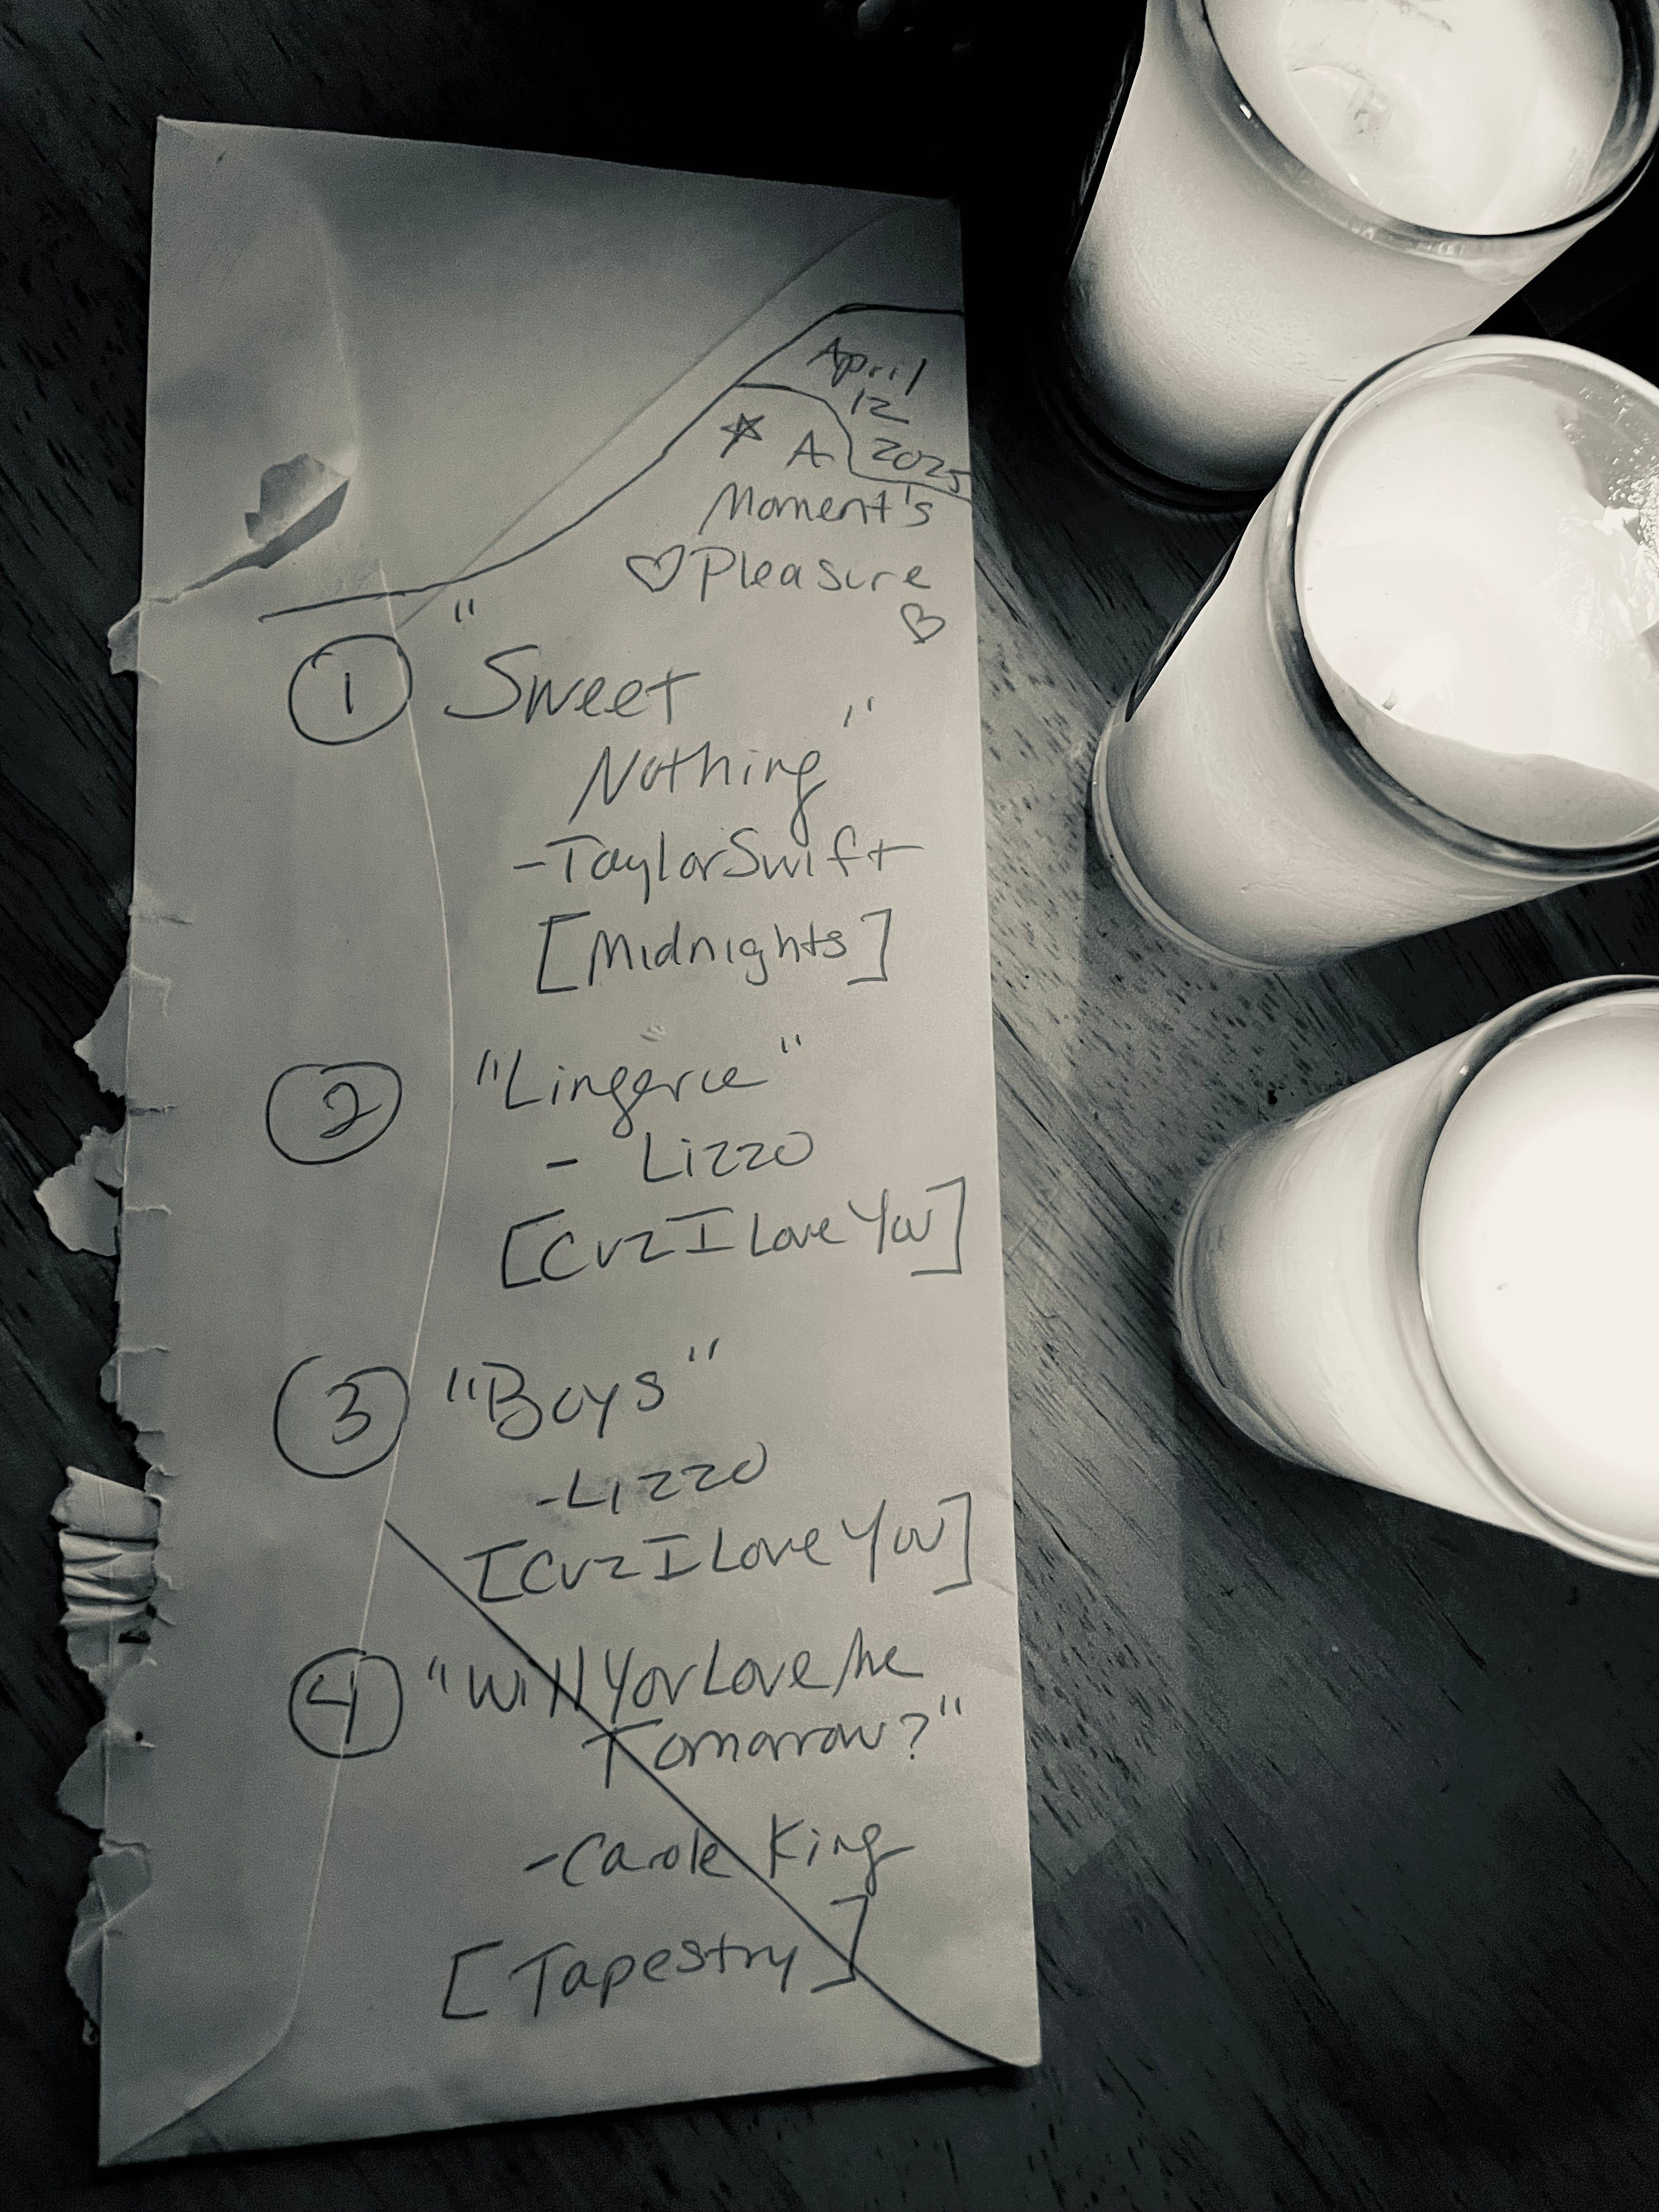 April
12
2025
☆ A
Moment's
♡ Pleasure
♡
① "Sweet
Nothing"
-Taylor Swift
[Midnights]
② "Lingerie"
- Lizzo
[Cuz I Love You]
③ "Boys"
-Lizzo
[Cuz I Love You]
④ "Will You Love Me
Tomorrow?"
-Carole King
[Tapestry]